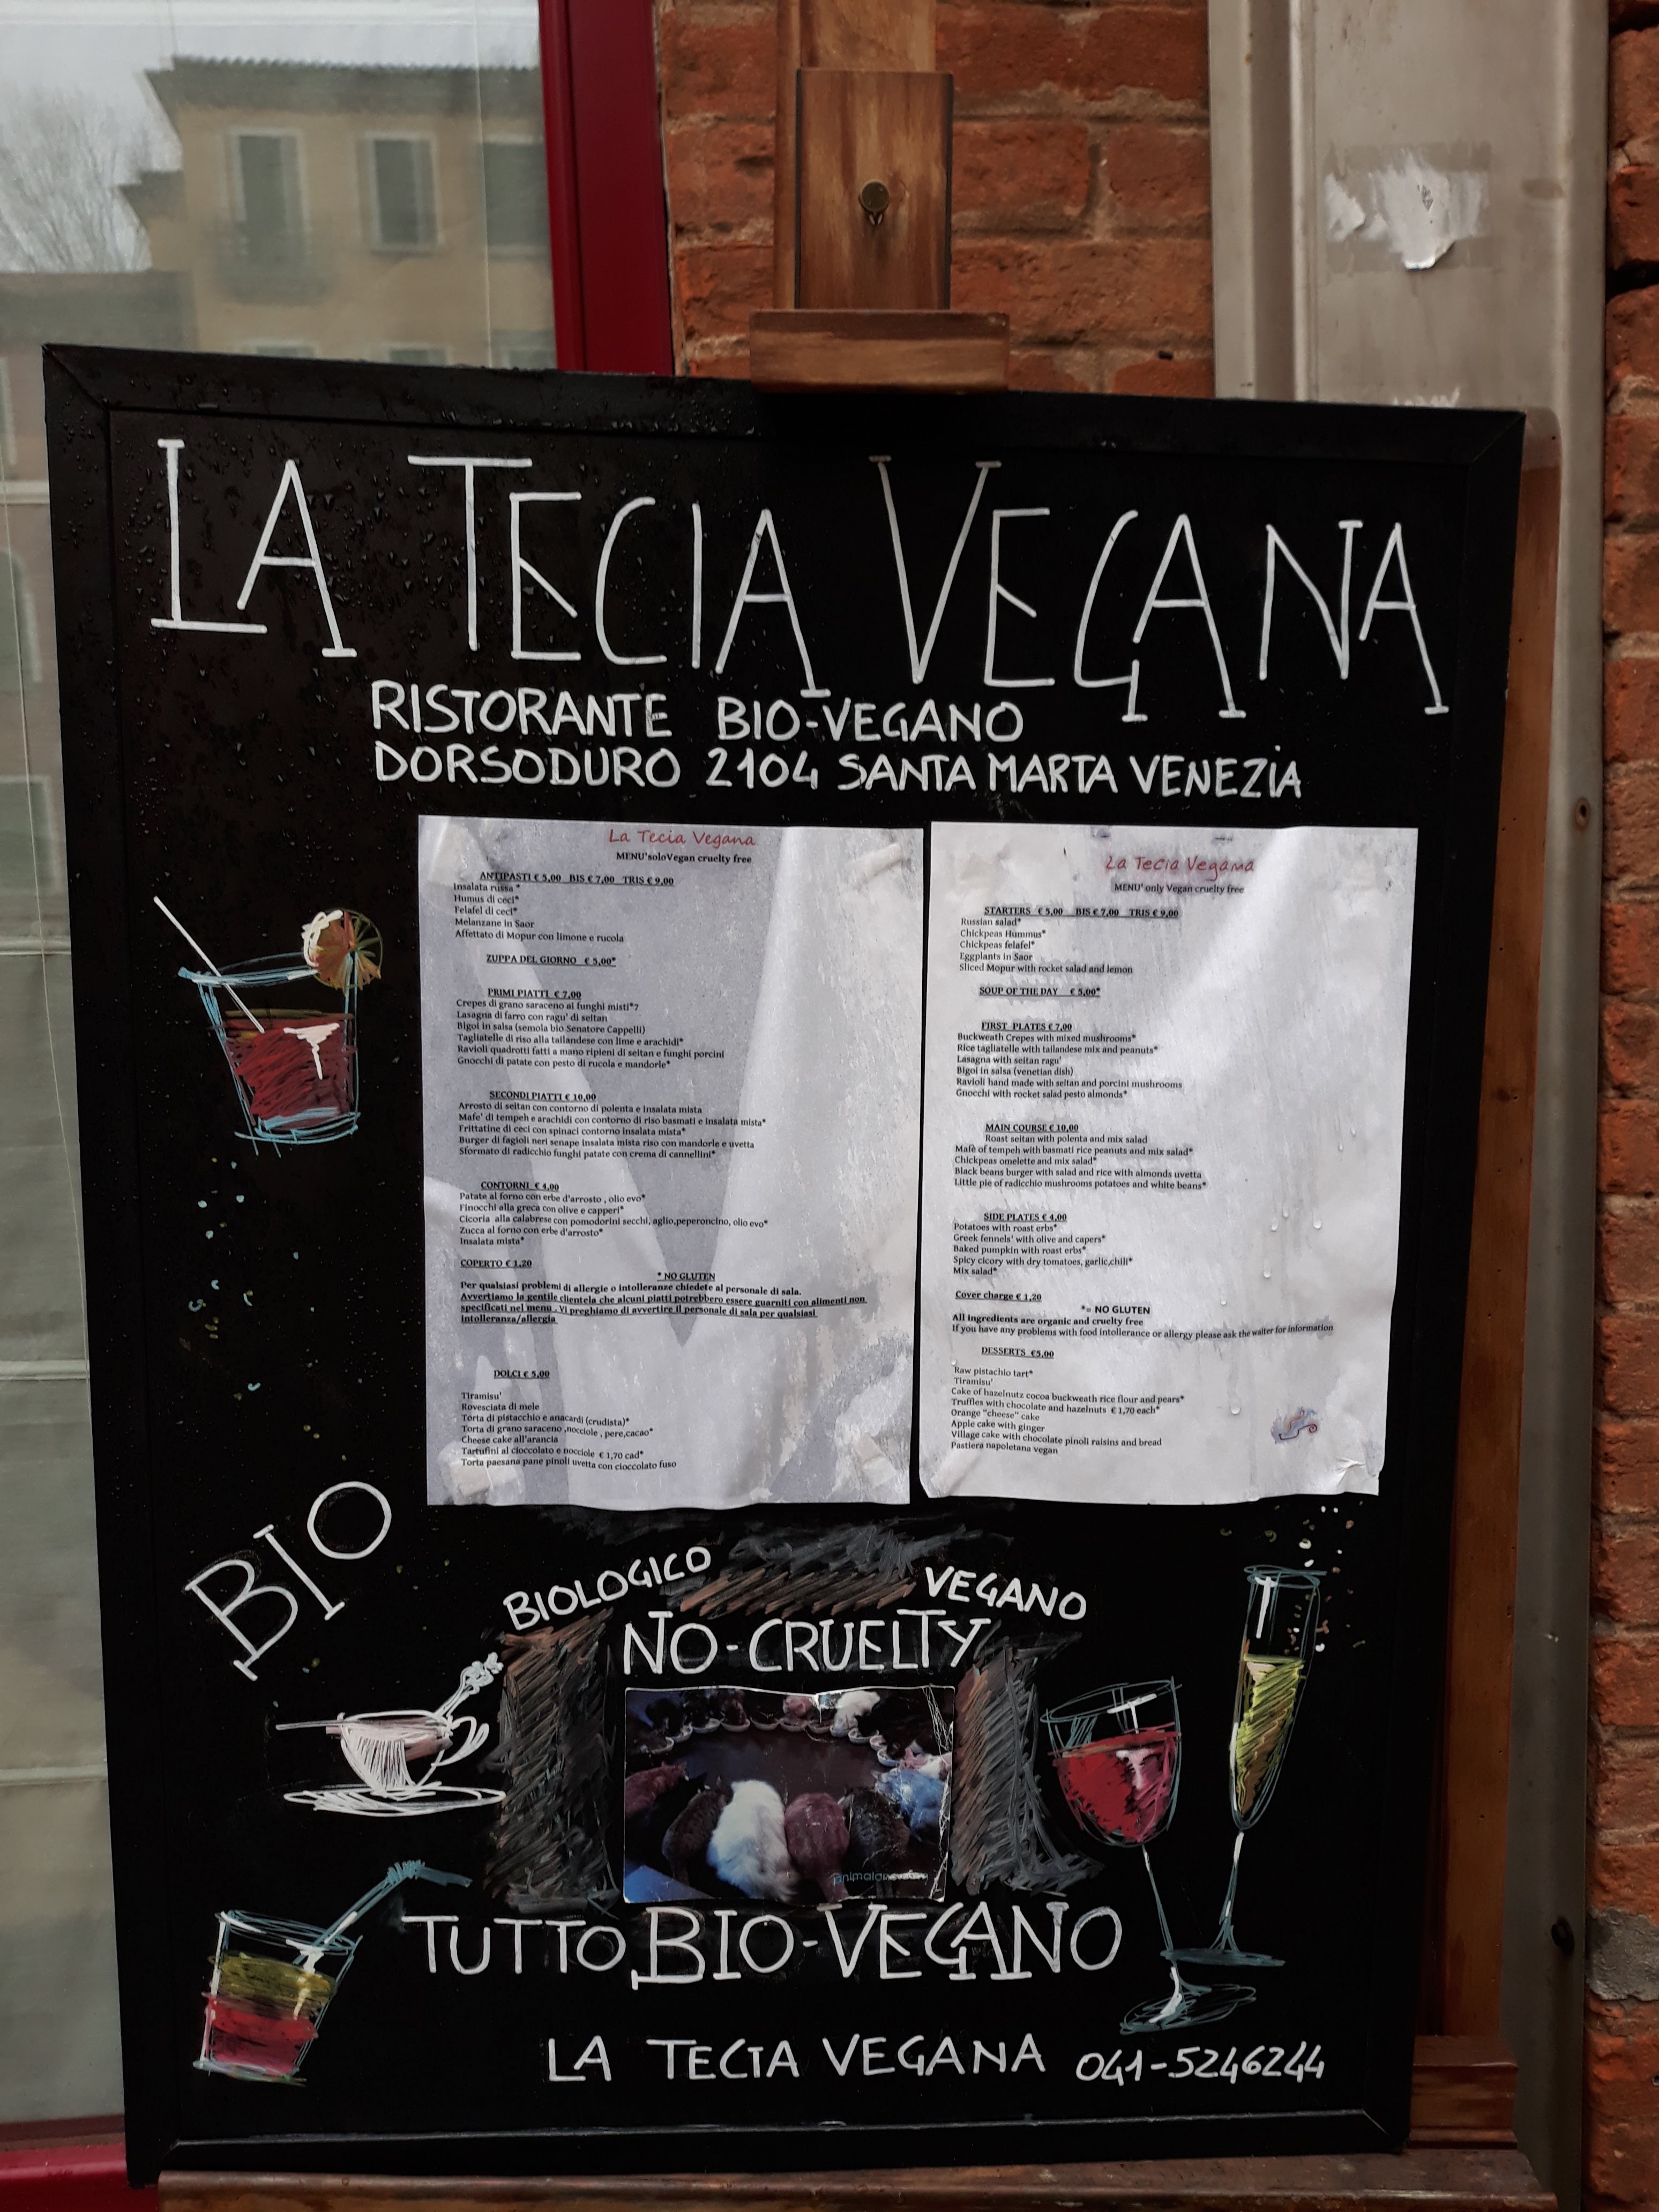 LA TECIA VEGANA
RISTORANTE BIO-VEGANO
DORSODURO 2104 SANTA MARTA VENEZIA
La Tecia Vegana
MENU'soloVegan cruelty free
ANTIPASTI € 5,00 BIS € 7,00 TRIS € 9,00
Insalata russa *
Humus di ceci*
Felafel di ceci*
Melanzane in Saor
Affettato di Mopur con limone e rucola
ZUPPA DEL GIORNO € 5,00*
PRIMI PIATTI € 7,00
Crepes di grano saraceno ai funghi misti*7
Lasagna di farro con ragu' di seitan
Bigoi in salsa (semola bio Senatore Cappelli)
Tagliatelle di riso alla tailandese con lime e arachidi*
Ravioli quadrotti fatti a mano ripieni di seitan e funghi porcini
Gnocchi di patate con pesto di rucola e mandorle*
SECONDI PIATTI € 10,00
Arrosto di seitan con contorno di polenta e insalata mista
Mafe' di tempeh e arachidi con contorno di riso basmati e insalata mista*
Frittatine di ceci con spinaci contorno insalata mista*
Burger di fagioli neri senape insalata mista riso con mandorle e uvetta
Sformato di radicchio funghi patate con crema di cannellini*
CONTORNI € 4,00
Patate al forno con erbe d'arrosto , olio evo*
Finocchi alla greca con olive e capperi*
Cicoria alla calabrese con pomodorini secchi, aglio,peperoncino, olio evo*
Zucca al forno con erbe d'arrosto*
Insalata mista*
COPERTO € 1,20
* NO GLUTEN
Per qualsiasi problemi di allergie o intolleranze chiedete al personale di sala.
Avvertiamo la gentile clientela che alcuni piatti potrebbero essere guarniti con alimenti non
specificati nel menu . Vi preghiamo di avvertire il personale di sala per qualsiasi
intolleranza/allergia
DOLCI € 5,00
Tiramisu'
Rovesciata di mele
Torta di pistacchio e anacardi (crudista)*
Torta di grano saraceno ,nocciole , pere,cacao*
Cheese cake all'arancia
Tartufini al cioccolato e nocciole € 1,70 cad*
Torta paesana pane pinoli uvetta con cioccolato fuso
La Tecia Vegana
MENU' only Vegan cruelty free
STARTERS € 5,00 BIS € 7,00 TRIS € 9,00
Russian salad*
Chickpeas Hummus*
Chickpeas felafel*
Eggplants in Saor
Sliced Mopur with rocket salad and lemon
SOUP OF THE DAY € 5,00*
FIRST PLATES € 7,00
Buckweath Crepes with mixed mushrooms*
Rice tagliatelle with tailandese mix and peanuts*
Lasagna with seitan ragu'
Bigoi in salsa (venetian dish)
Ravioli hand made with seitan and porcini mushrooms
Gnocchi with rocket salad pesto almonds*
MAIN COURSE € 10,00
Roast seitan with polenta and mix salad
Mafè of tempeh with basmati rice peanuts and mix salad*
Chickpeas omelette and mix salad*
Black beans burger with salad and rice with almonds uvetta
Little pie of radicchio mushrooms potatoes and white beans*
SIDE PLATES € 4,00
Potatoes with roast erbs*
Greek fennels' with olive and capers*
Baked pumpkin with roast erbs*
Spicy cicory with dry tomatoes, garlic,chili*
Mix salad*
Cover charge € 1,20
*= NO GLUTEN
All ingredients are organic and cruelty free
If you have any problems with food intollerance or allergy please ask the waiter for information
DESSERTS €5,00
Raw pistachio tart*
Tiramisu'
Cake of hazelnutz cocoa buckweath rice flour and pears*
Truffles with chocolate and hazelnuts € 1,70 each*
Orange "cheese" cake
Apple cake with ginger
Village cake with chocolate pinoli raisins and bread
Pastiera napoletana vegan
BIO
BIOLOGICO VEGANO
NO-CRUELTY
TUTTO BIO-VEGANO
LA TECIA VEGANA 041-5246244